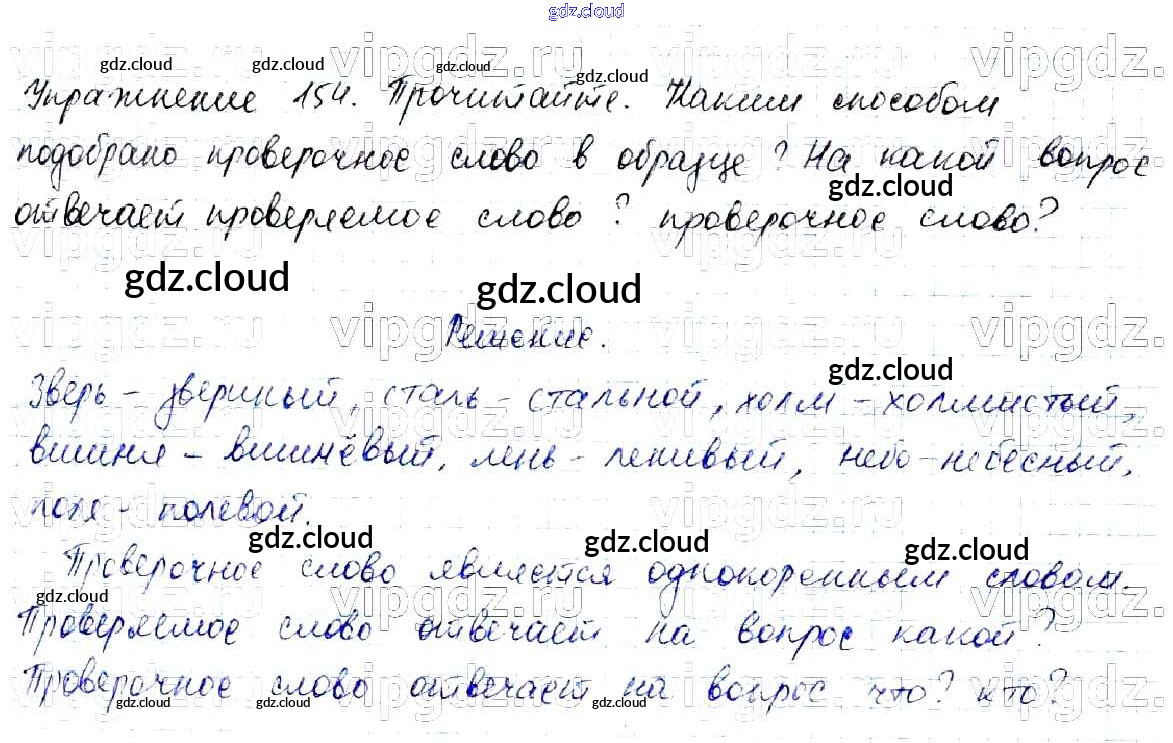 gdz.cloud
vipgdz.ru vipgdz.ru vipgdz.
gdz.cloud gdz.cloud gdz.cloud gdz.cloud
Упражнение 154. Прочитайте. Каким способом
подобрано проверочное слово в образце? На какой вопрос
gdz.cloud
отвечает проверяемое слово? проверочное слово?
gdz.cloud gdz.cloud
vipgdz.ru vipgdz.ru vipgdz.
Решение.
gdz.cloud
Зверь - звериный, сталь - стальной, холм - холмистый,
вишня - вишнёвый, лень - ленивый, небо - небесный,
vipgdz.ru vipgdz.ru vipgdz.
поле - полевой.
gdz.cloud gdz.cloud gdz.cloud
Проверочное слово является однокоренным словом.
gdz.cloud
vipgdz.ru vipgdz.ru vipgdz.
Проверяемое слово отвечает на вопрос какой?
Проверочное слово отвечает на вопрос что? кто?
gdz.cloud gdz.cloud gdz.cloud